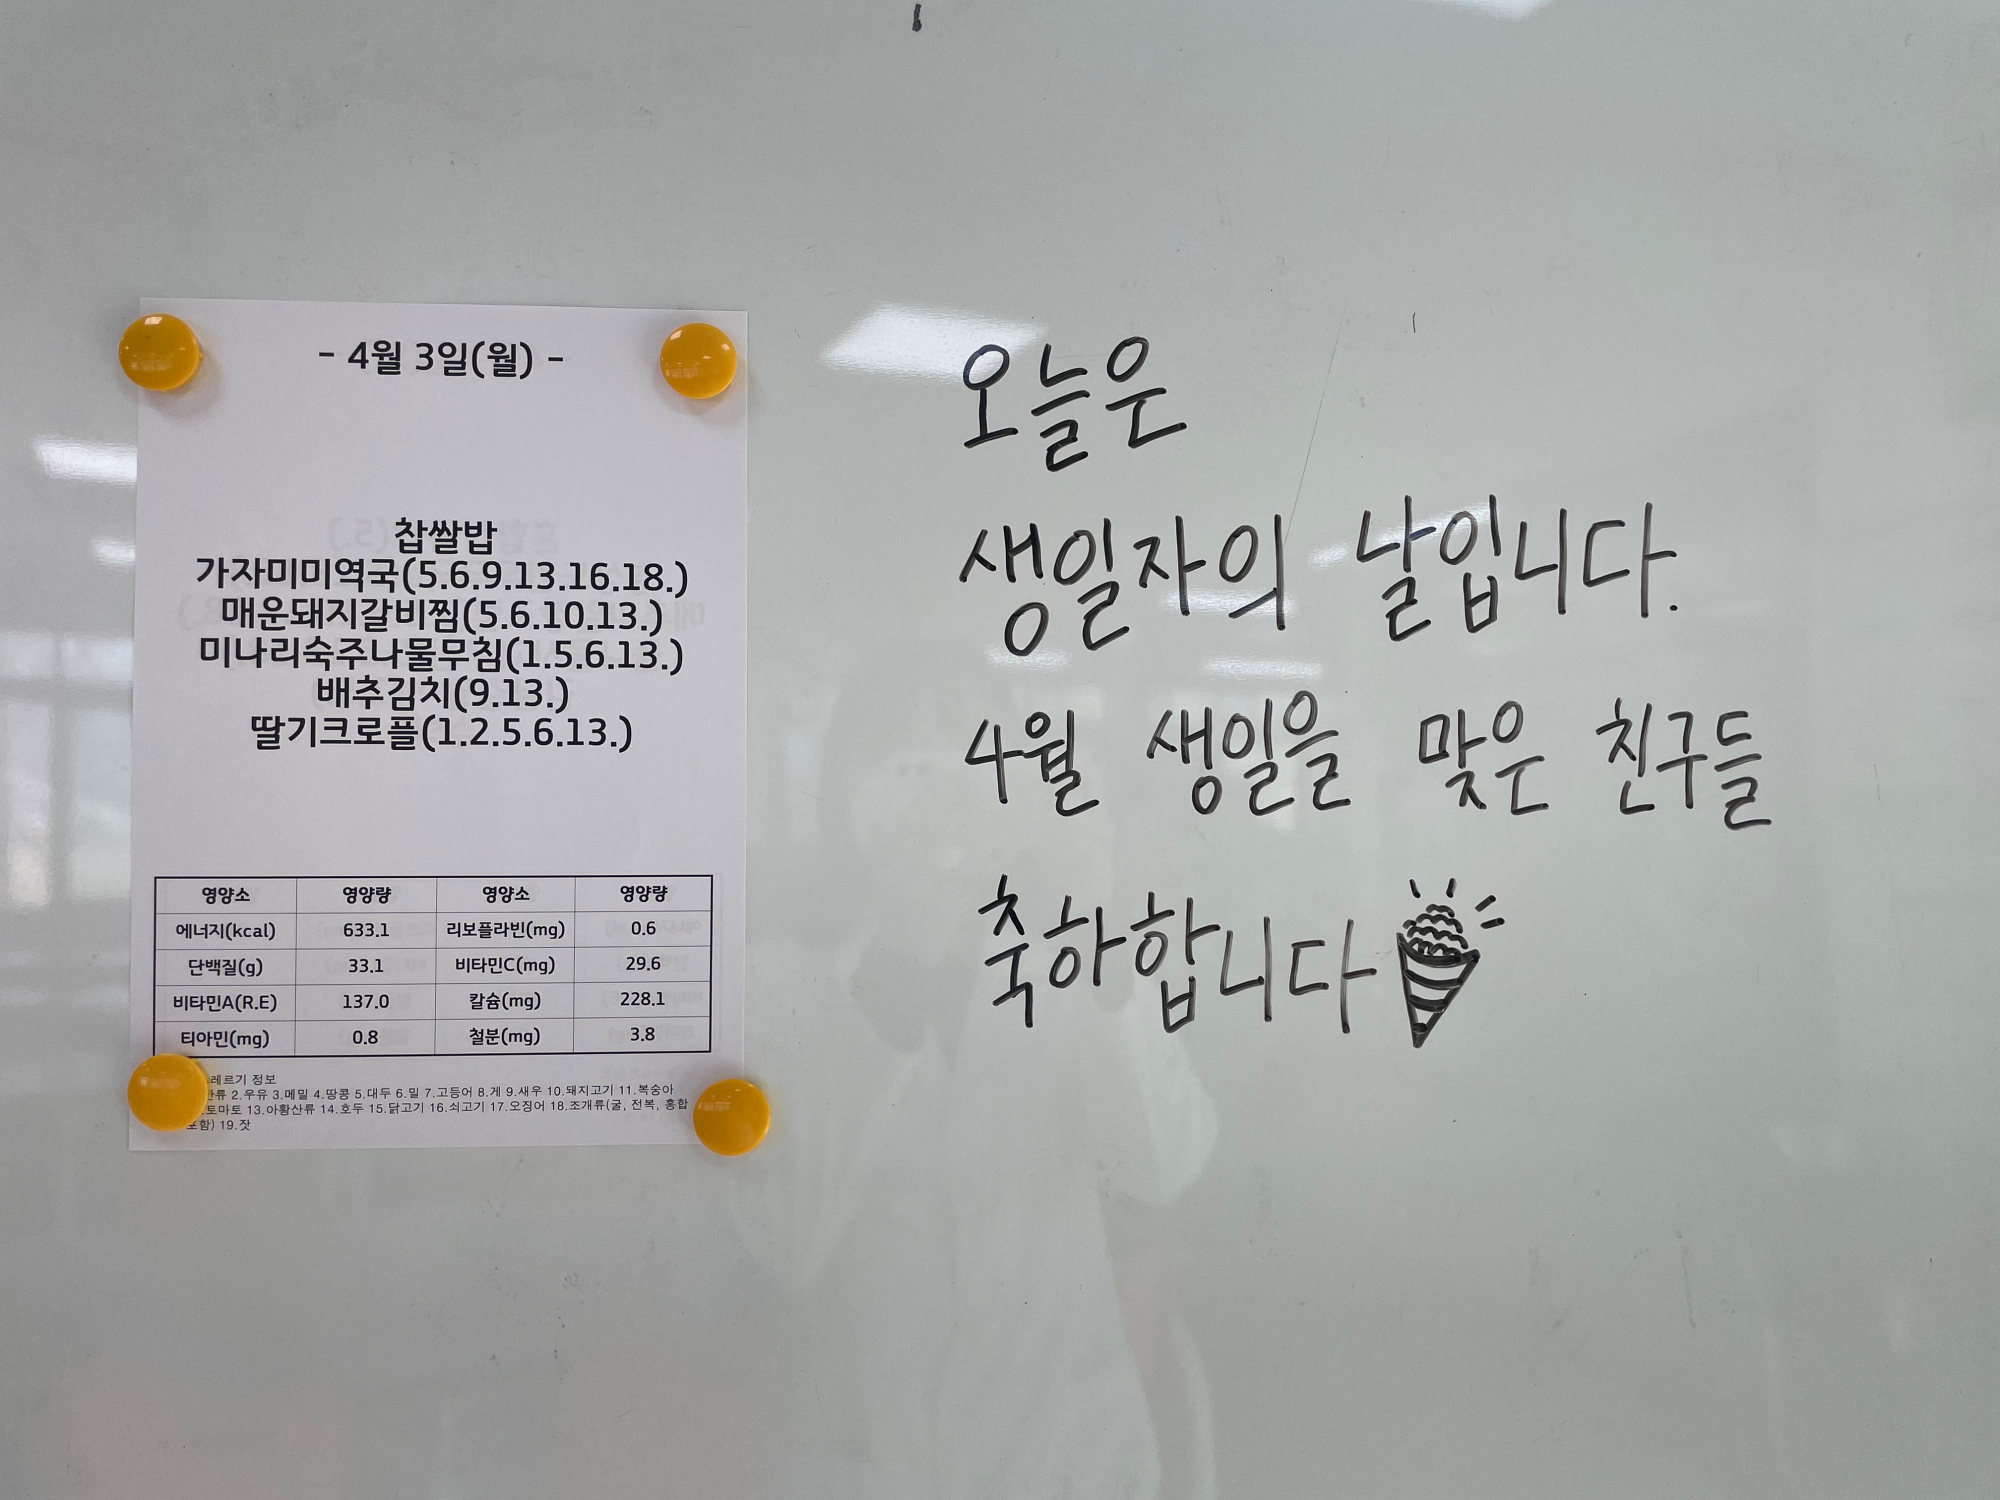 - 4월 3일(월) -
찹쌀밥
가자미미역국(5.6.9.13.16.18.)
매운돼지갈비찜(5.6.10.13.)
미나리숙주나물무침(1.5.6.13.)
배추김치(9.13.)
딸기크로플(1.2.5.6.13.)
영양소 영양량 영양소 영양량
에너지(kcal) 633.1 리보플라빈(mg) 0.6
단백질(g) 33.1 비타민C(mg) 29.6
비타민A(R.E) 137.0 칼슘(mg) 228.1
티아민(mg) 0.8 철분(mg) 3.8
레르기 정보
류 2.우유 3.메밀 4.땅콩 5.대두 6.밀 7.고등어 8.게 9.새우 10.돼지고기 11.복숭아
토마토 13.아황산류 14.호두 15.닭고기 16.쇠고기 17.오징어 18.조개류(굴, 전복, 홍합
포함) 19.잣
오늘은
생일자의 날입니다.
4월 생일을 맞은 친구들
축하합니다